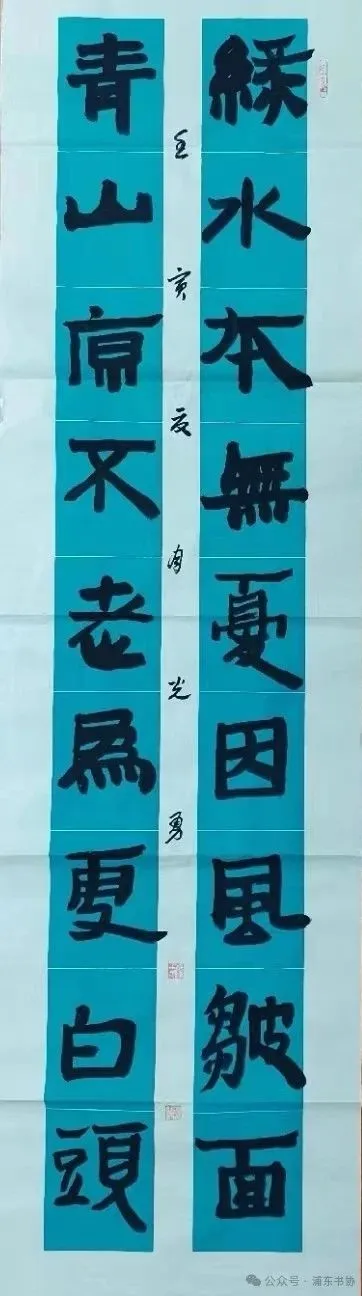 綠水本無憂因風皺面
青山原不老為更白頭
壬寅夏光勇
公众号 · 浦东书协